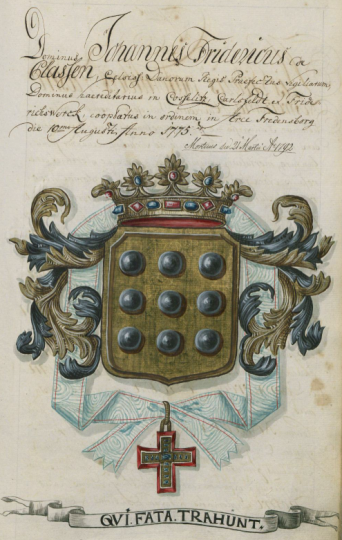 Dominus Johannes Fridericus de
Classen, Celsiss. Danorum Regis Præfectus Vigiliarum,
Dominus hæreditarius in Corselitz, Carlsfeldt et Fride
richswerck cooptatus in ordinem, in Arce Fredensborg
die 10me Augusti, Anno 1775.
Mortuus die 24 Martii Ao 1792
QVI.FATA.TRAHUNT.